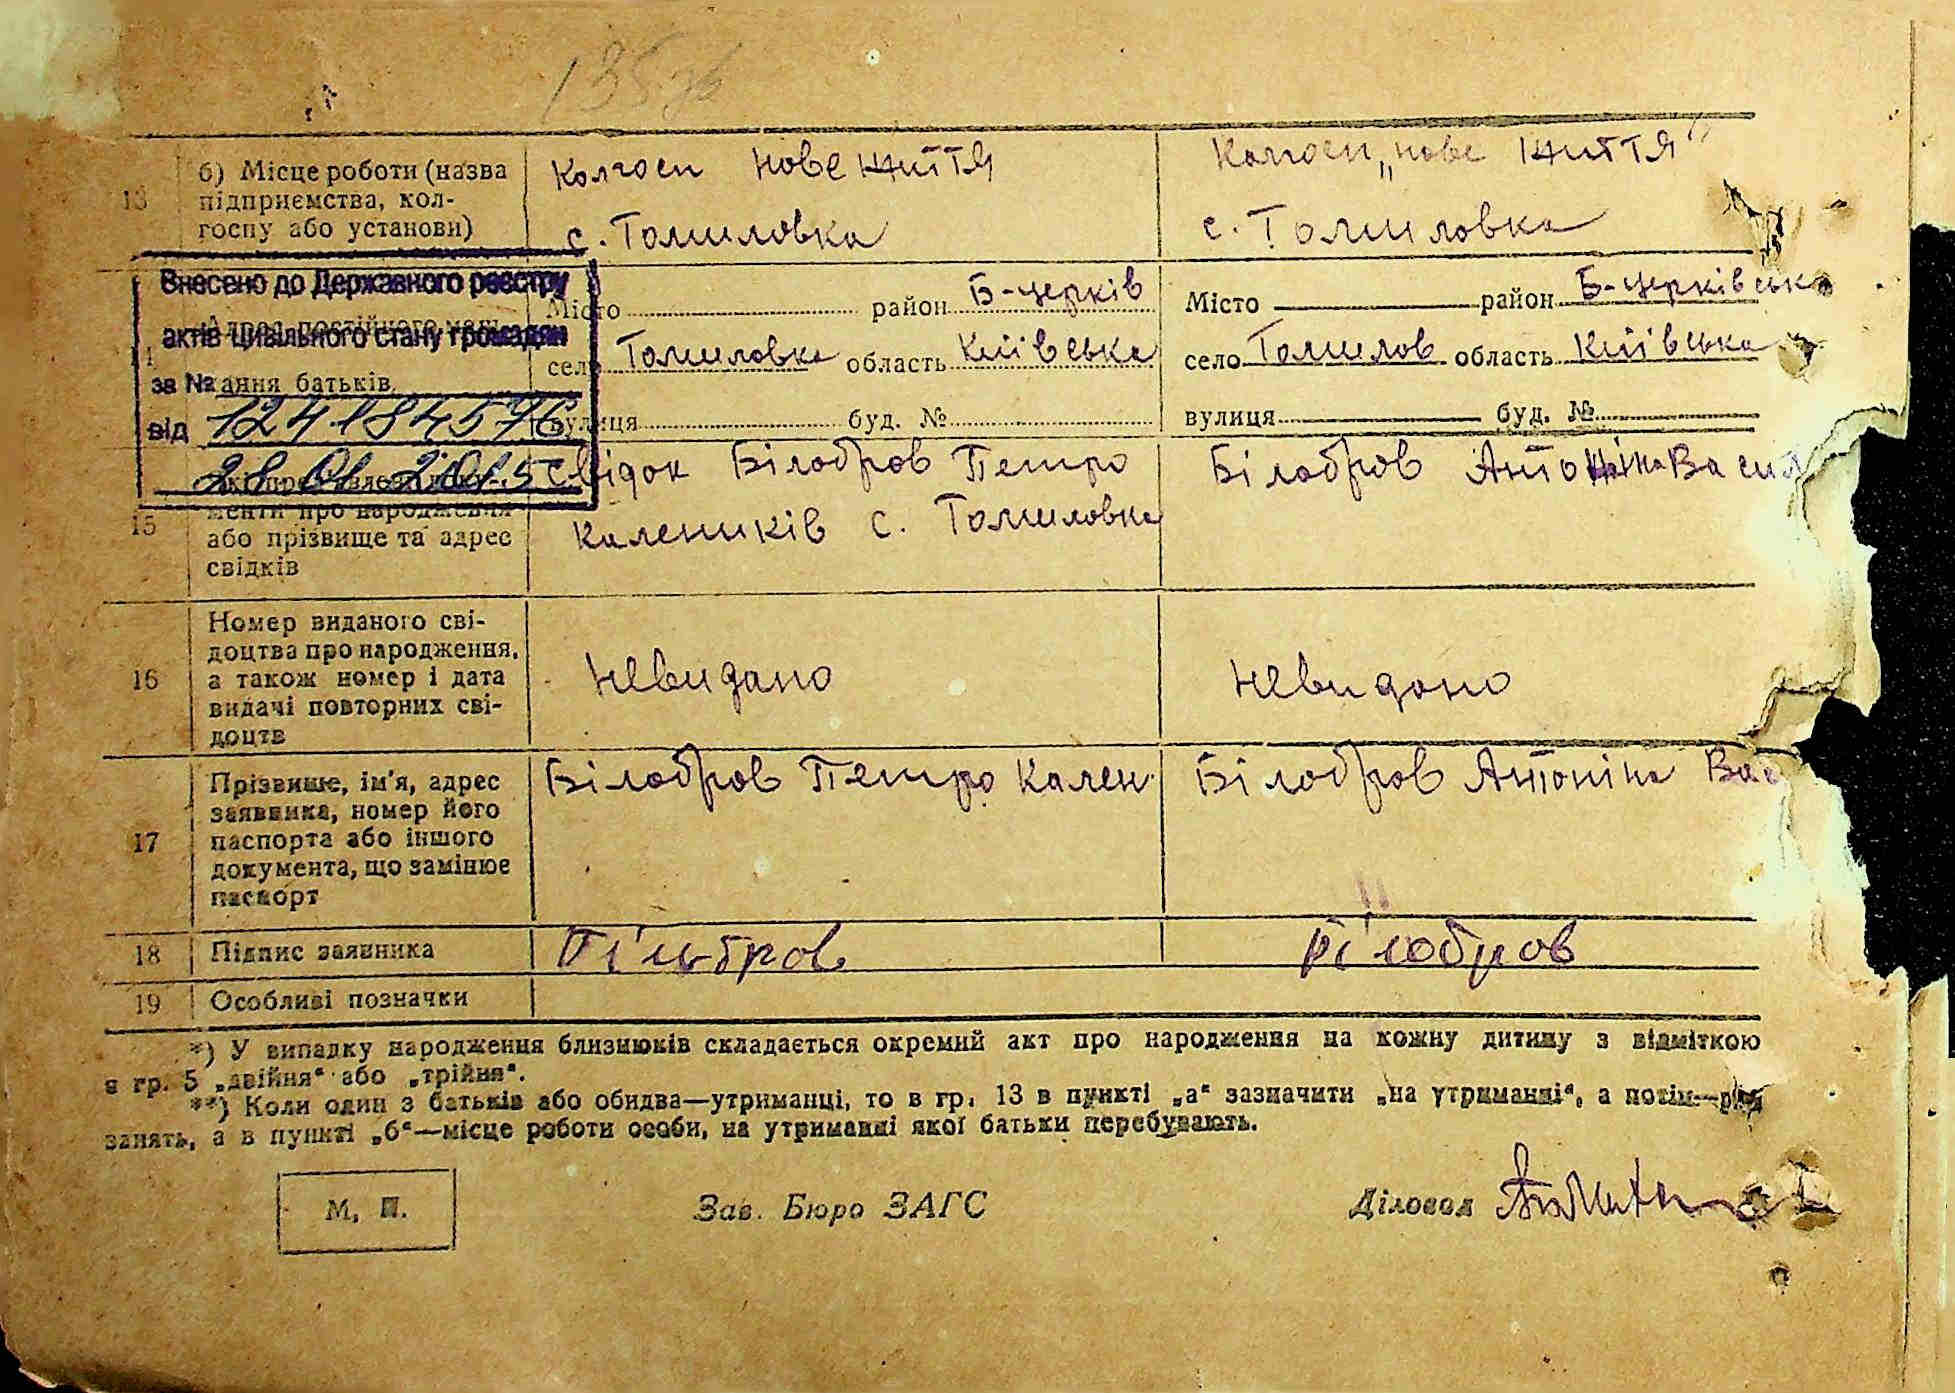 135 зв
13 б) Місце роботи (назва підприємства, кол-госпу або установи)
Колгосп нове життя
с. Томиловка
Колгосп „нове життя"
с. Томиловка
Внесено до Державного реєстру
актів цивільного стану громадян
за №
124184576
від
28 01 2015
ання батьків
Місто район Б-церків
село Томиловка область Київська
вулиця буд. №
Місто район Б-церківська
село Томилов область Київська
вулиця буд. №
15
менти про народження
або прізвище та адрес
свідків
Свідок Білобров Петро
Калеників с. Томиловка
Білобров Антоніна Васил
16
Номер виданого сві-
доцтва про народження,
а також номер і дата
видачі повторних сві-
доцтв
Невидано
Невидано
17
Прізвище, ім'я, адрес
заявника, номер його
паспорта або іншого
документа, що замінює
паспорт
Білобров Петро Кален
Білобров Антоніна Вас
18 Підпис заявника
Білобров
19 Особливі позначки
*) У випадку народження близнюків складається окремий акт про народження на кожну дитину з відміткою
в гр. 5 „двійня" або „трійня".
**) Коли один з батьків або обидва—утриманці, то в гр. 13 в пункті „а" зазначити „на утриманні", а потім—рід
занять, а в пункті „б"—місце роботи особи, на утриманні якої батьки перебувають.
М. П.
Зав. Бюро ЗАГС
Діловод